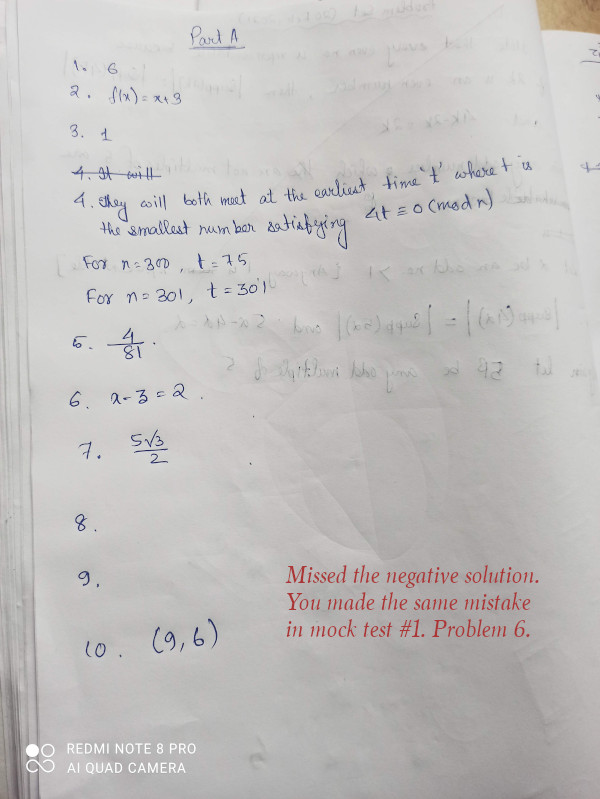 Part A
1. 6
2. f(x) = x+3
3. 1
4. It will
4. They will both meet at the earliest time 't' where t is
the smallest number satisfying 4t ≡ 0 (mod n)
For n = 300, t = 75
For n = 301, t = 301
5. 4/81
6. x-3 = 2.
7. 5√3/2
8.
9.
10. (9,6)
Missed the negative solution.
You made the same mistake
in mock test #1. Problem 6.
REDMI NOTE 8 PRO
AI QUAD CAMERA